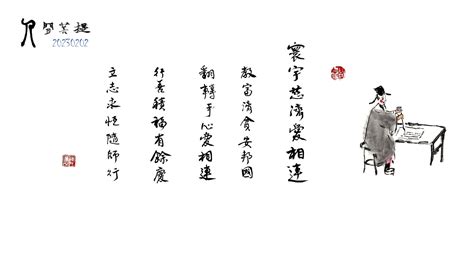 人間菩提
20230202
寰宇慈濟愛相連
教富濟貧安邦國
翻轉手心愛相連
行善積福有餘慶
立志永恆隨師行